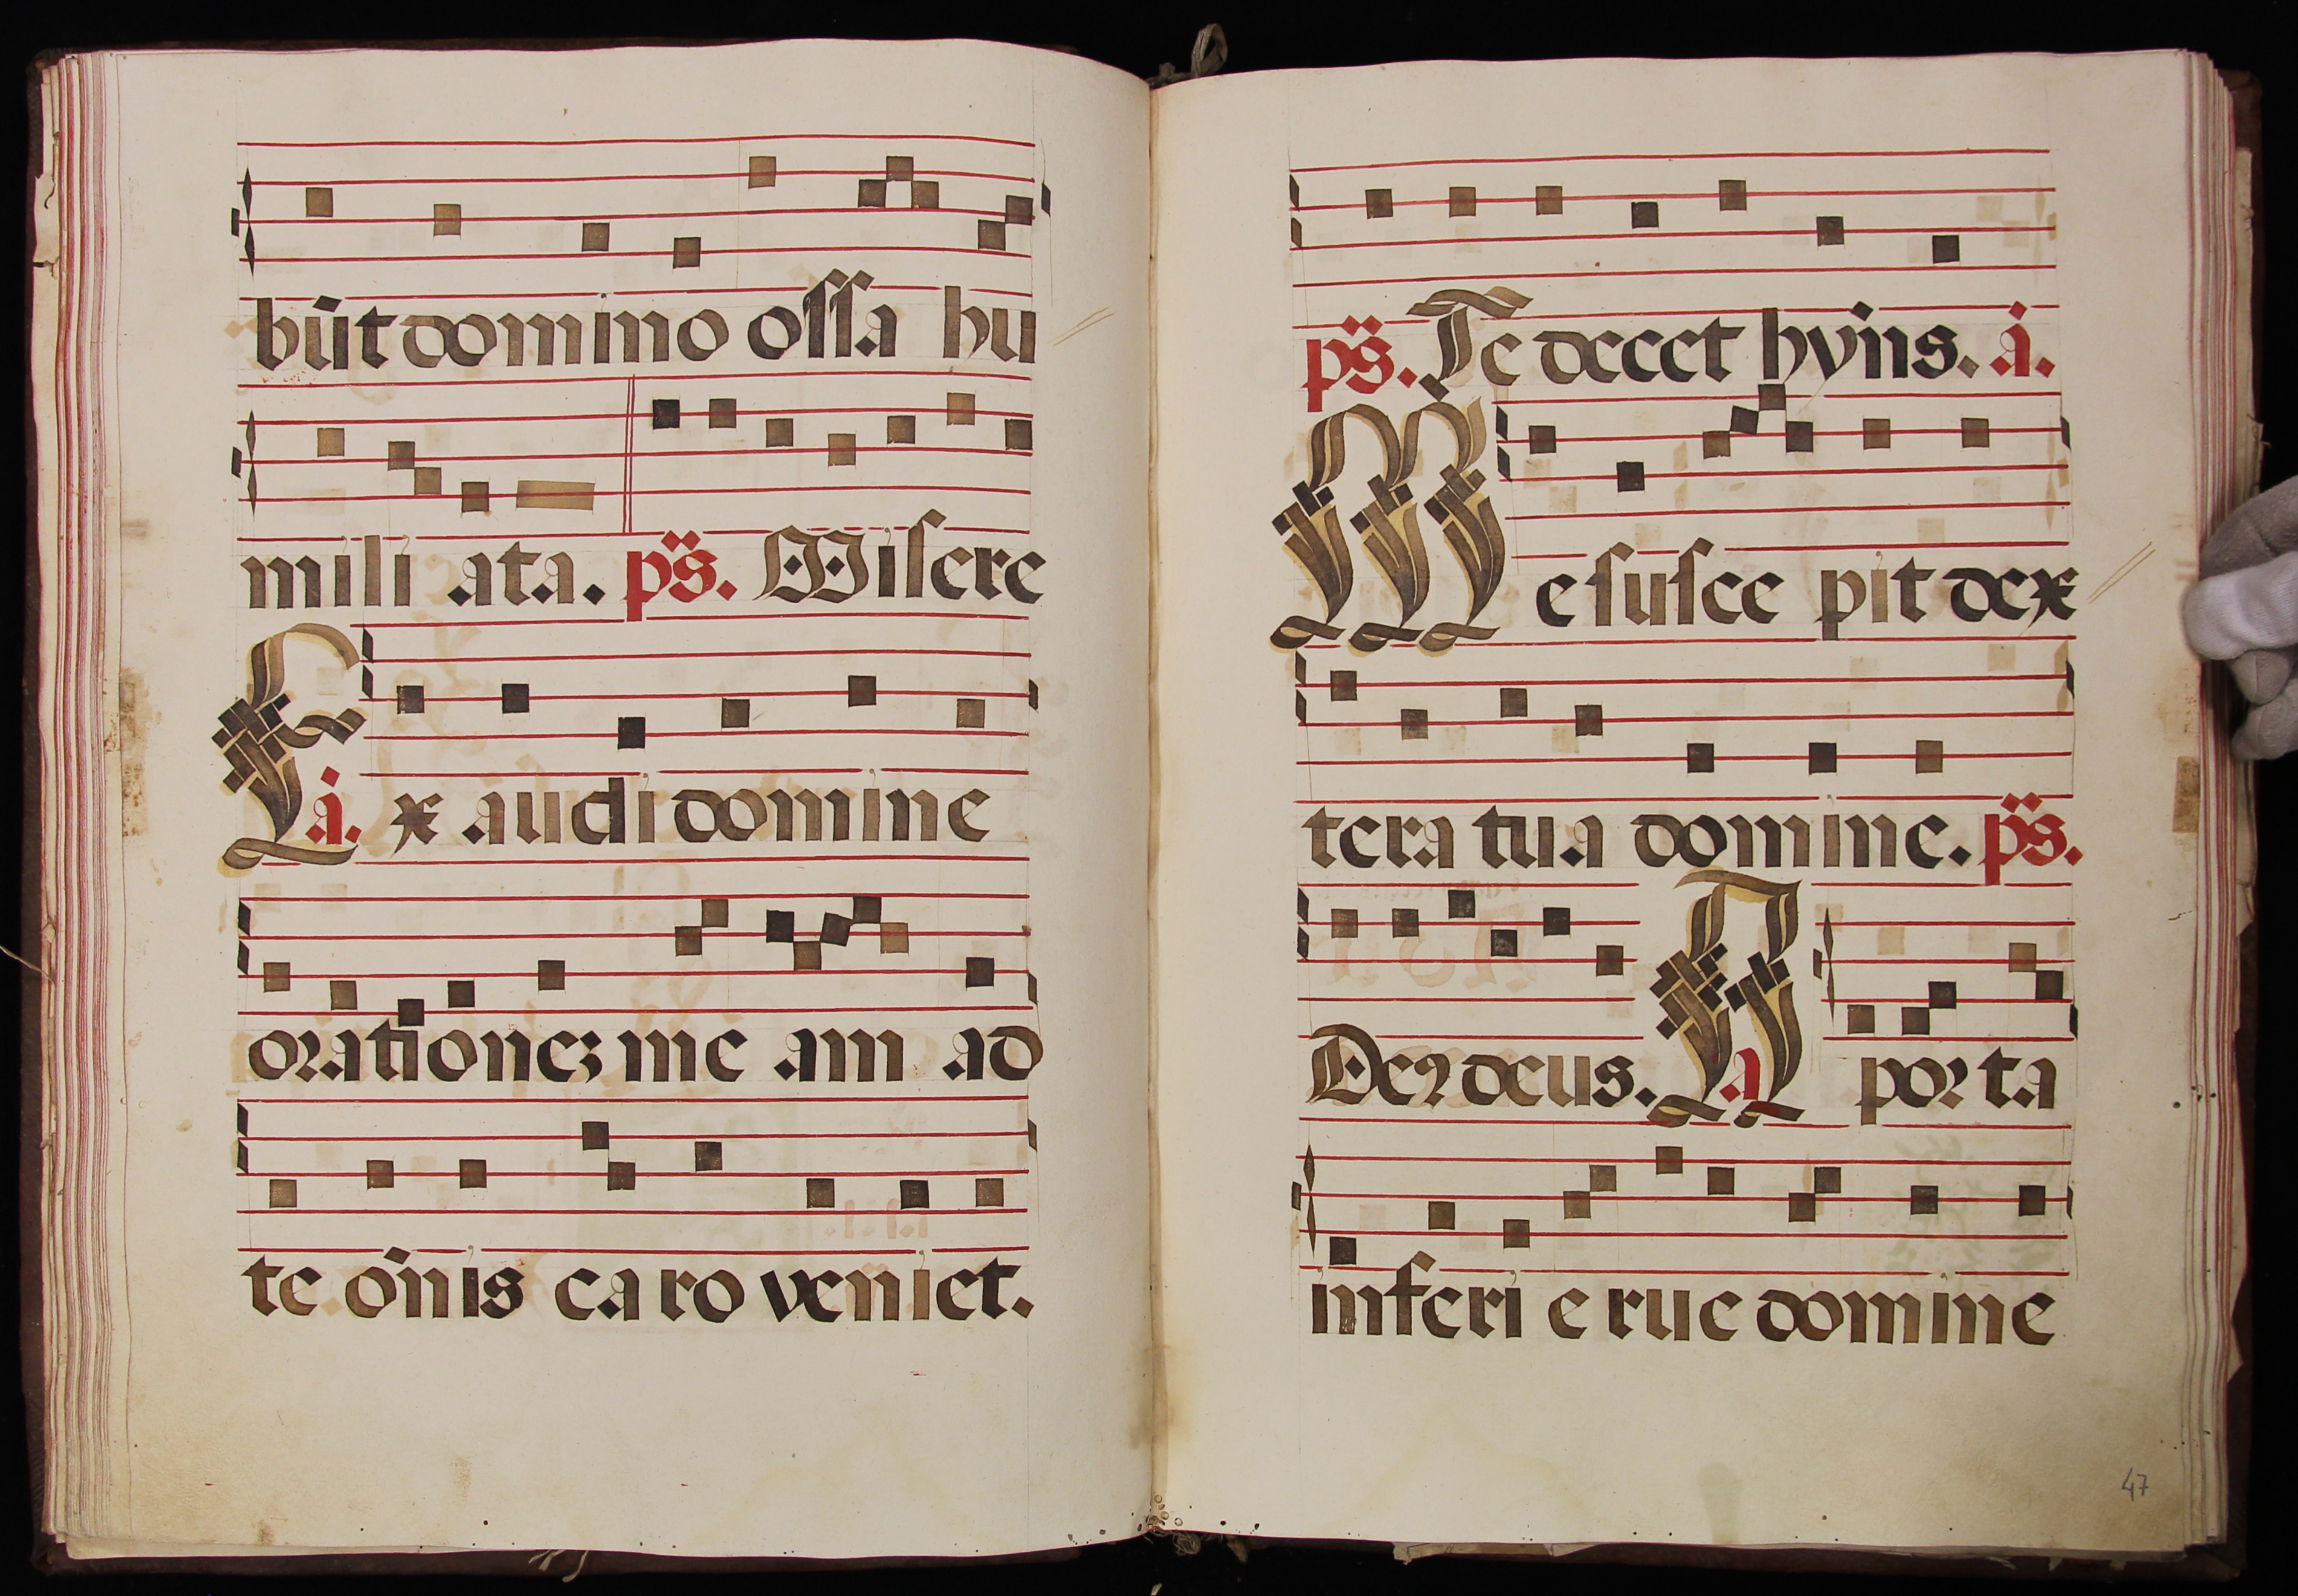 bu̅t domino ossa hu
mili ata. ps. Misere
Ea. x audi domine
oratione₃ me am ad
te o̅nis caro veniet.
ps. Te decet hy̅ns. a.
Me susce pit dex
tera tua domine. ps.
Deꝰ deus. A a porta
inferi e rue domine
47